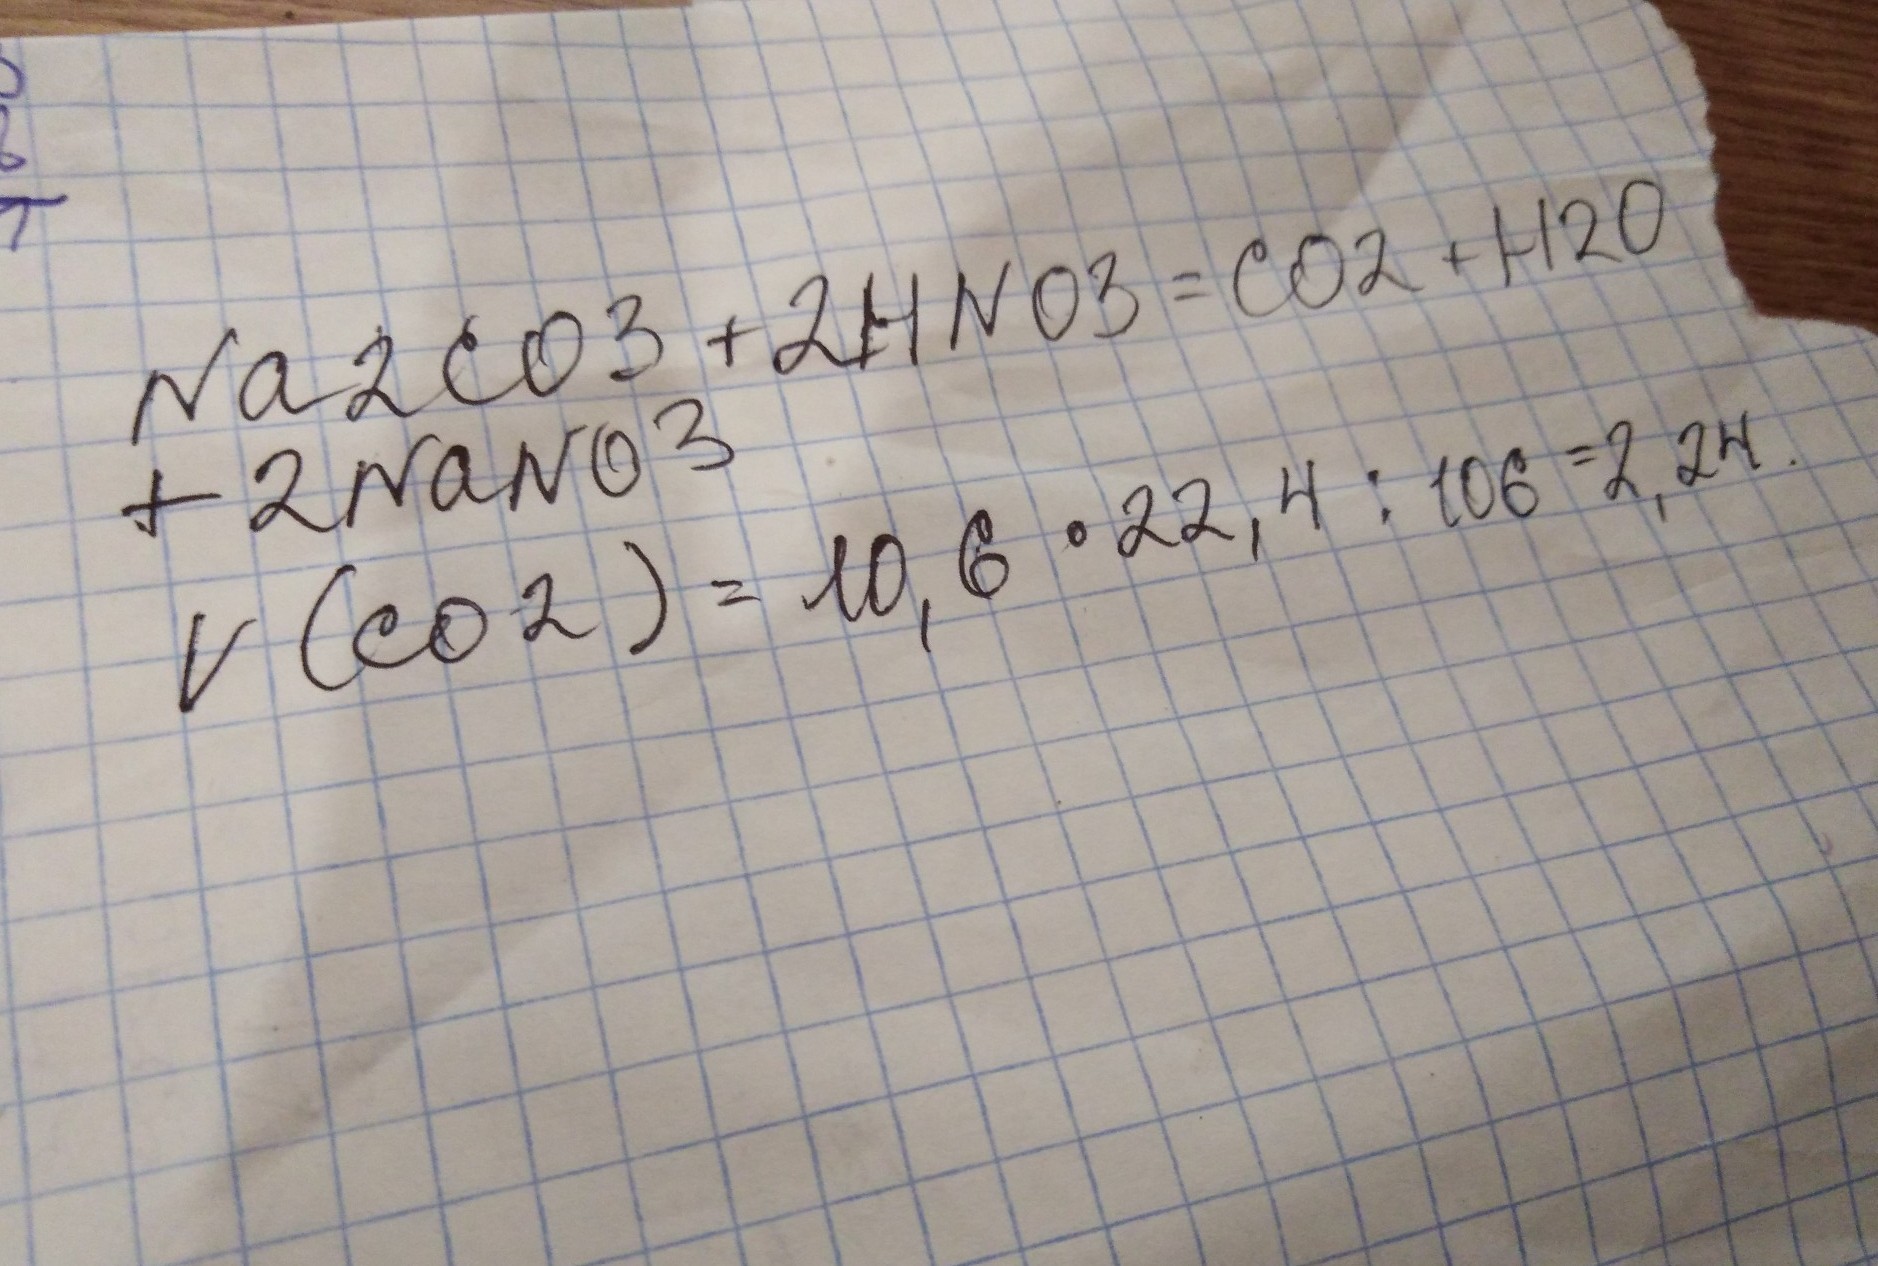 Na2CO3 + 2HNO3 = CO2 + H2O
+ 2NaNO3
V (CO2) = 10,6 • 22,4 : 106 = 2,24.